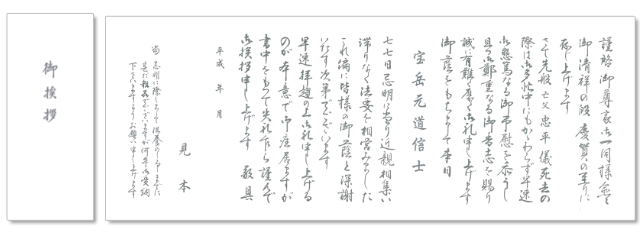 御挨拶
謹啓 御尊家御一同様愈々
御清祥の段慶賀の至りに
存じ上げます
さて先般 亡父 忠平 儀死去の
際は御多忙中にもかかわらず早速
御懇篤なる御弔慰を忝うし
且つ御鄭重なる御芳志を賜り
誠に有難く厚く御礼申し上げます
御蔭をもちまして本日
宝岳元道信士
七七日忌明に当り近親相集い
滞りなく法要を相営みました
これ偏に皆様の御蔭と深謝
いたす次第でございます
早速拝趨の上御礼申し上げる
のが本意で御座居ますが
書中をもって失礼乍ら謹んで
御挨拶申し上げます 敬具
平成 年 月
見本
尚 忌明に際しまして供養のしるしまでに
下さいますようお願い申し上げます